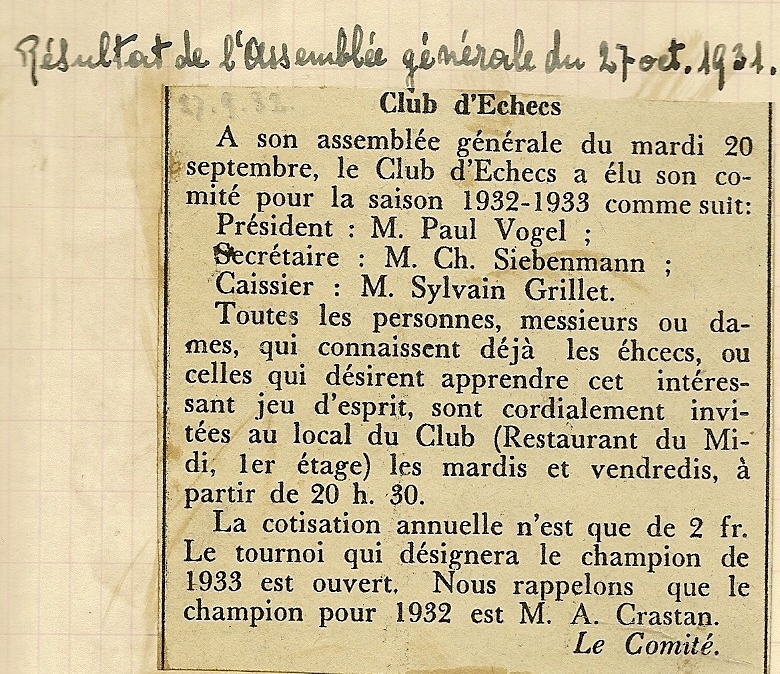 Résultat de l'Assemblée générale du 27 oct. 1931.
27.9.32.
Club d'Echecs
A son assemblée générale du mardi 20
septembre, le Club d'Echecs a élu son co-
mité pour la saison 1932-1933 comme suit:
Président : M. Paul Vogel ;
Secrétaire : M. Ch. Siebenmann ;
Caissier : M. Sylvain Grillet.
Toutes les personnes, messieurs ou da-
mes, qui connaissent déjà les éhcecs, ou
celles qui désirent apprendre cet intéres-
sant jeu d'esprit, sont cordialement invi-
tées au local du Club (Restaurant du Mi-
di, 1er étage) les mardis et vendredis, à
partir de 20 h. 30.
La cotisation annuelle n'est que de 2 fr.
Le tournoi qui désignera le champion de
1933 est ouvert. Nous rappelons que le
champion pour 1932 est M. A. Crastan.
Le Comité.